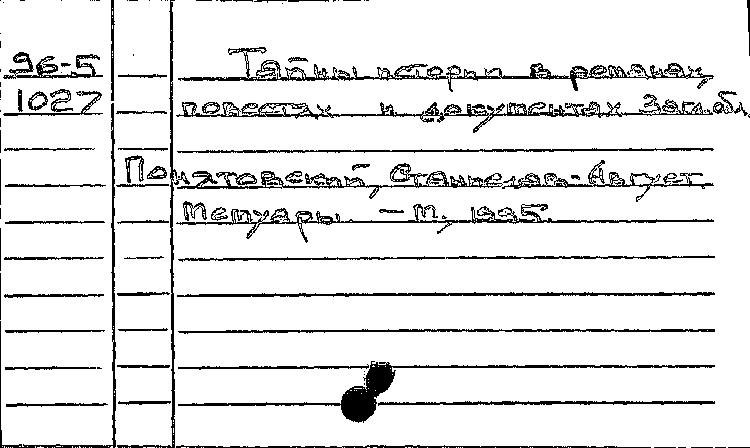 96-5 Тайны истории в романах,
1027 повестях и документах Загл.обл.
Понятовский, Станислав-Август.
Мемуары. - М., 1995.